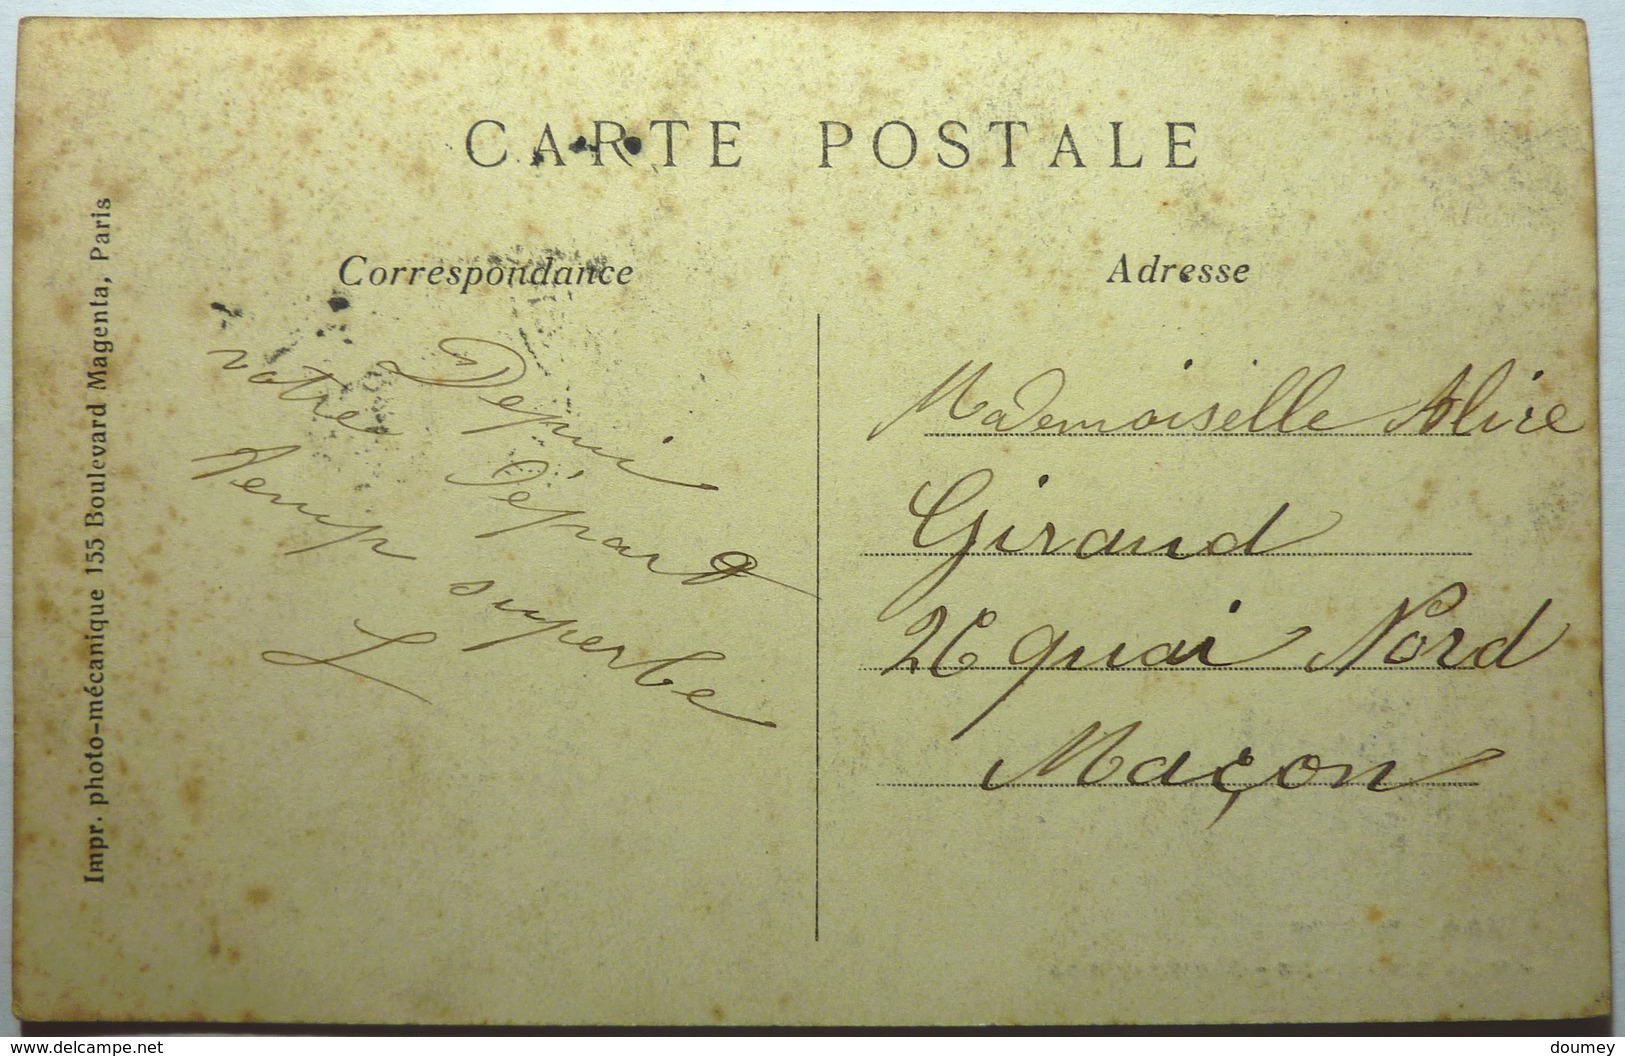 CARTE POSTALE
Correspondance
Depui
votre Départ
temp superbe
L
Adresse
Mademoiselle Alice
Giraud
26 quai Nord
Maçon
Impr. photo-mécanique 155 Boulevard Magenta, Paris
www.delcampe.net
doumey